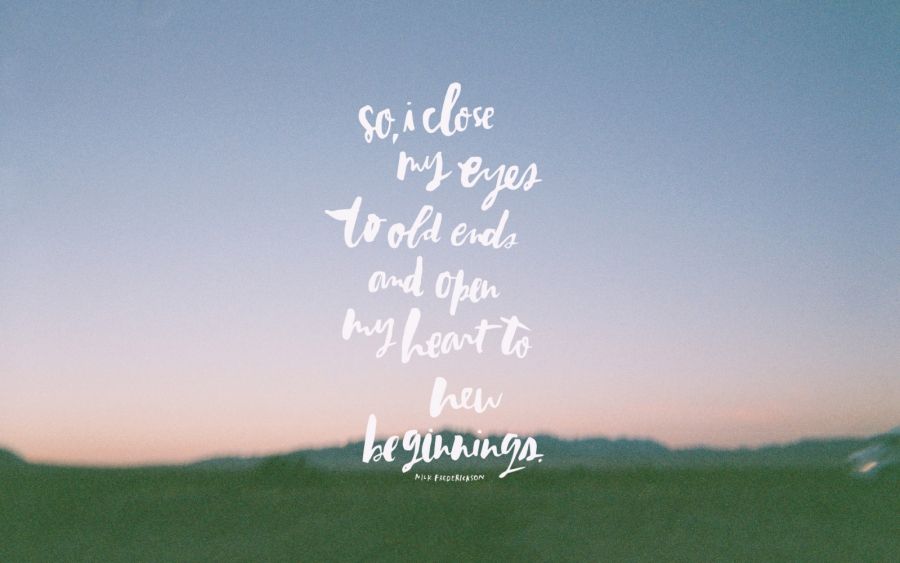 so, i close
my eyes
to old ends
and open
my heart to
new
beginnings.
NICK FREDERICKSON